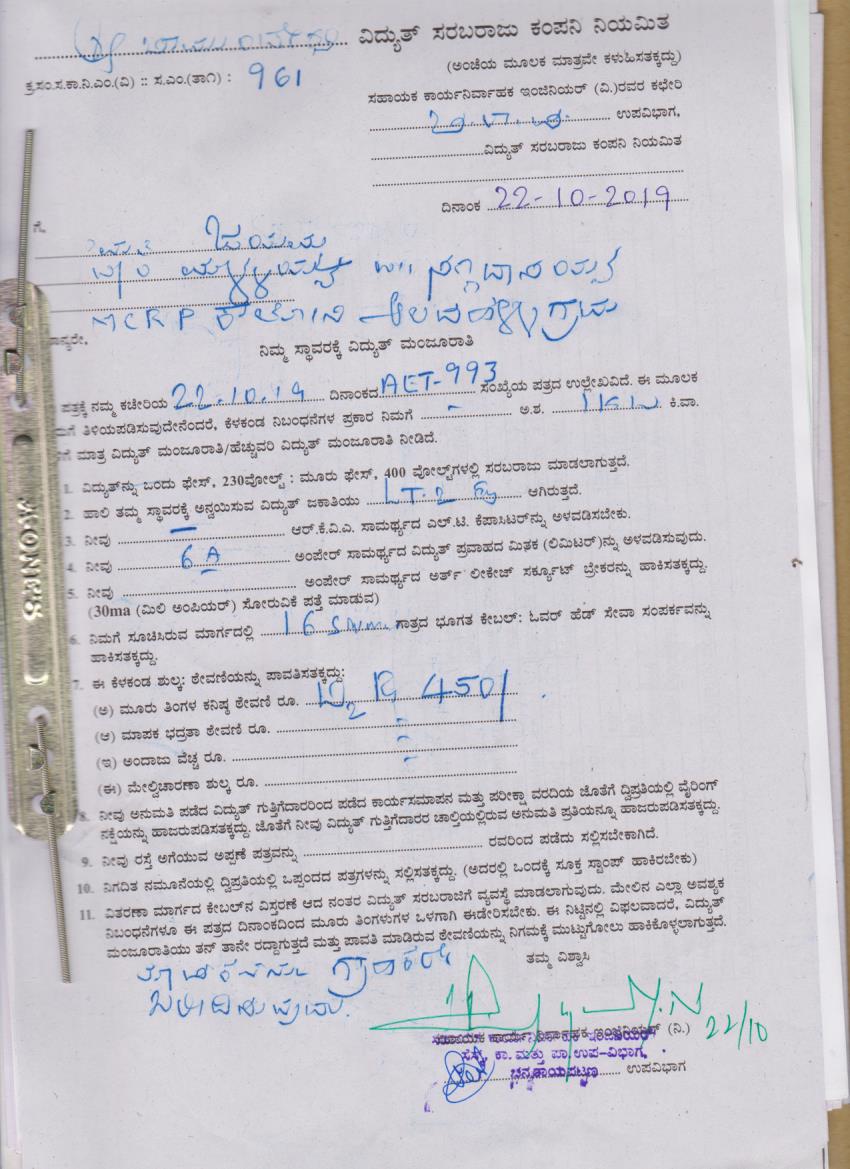 ವಿದ್ಯುತ್ ಸರಬರಾಜು ಕಂಪನಿ ನಿಯಮಿತ
(ಅಂಚೆಯ ಮೂಲಕ ಮಾತ್ರವೇ ಕಳುಹಿಸತಕ್ಕದ್ದು)
ಕ್ರ.ಸಂ.ಸ.ಕಾ.ನಿ.ಎಂ.(ವಿ) :: ಸ.ಎಂ.(ತಾ೧) : 961
ಸಹಾಯಕ ಕಾರ್ಯನಿರ್ವಾಹಕ ಇಂಜಿನಿಯರ್ (ವಿ.)ರವರ ಕಛೇರಿ
ಉಪವಿಭಾಗ,
ವಿದ್ಯುತ್ ಸರಬರಾಜು ಕಂಪನಿ ನಿಯಮಿತ
ದಿನಾಂಕ 22-10-2019
ಗೆ,
MCRP ಕಾಲೋನಿ ಗ್ರಾಮ
ಮಾನ್ಯರೇ,
ನಿಮ್ಮ ಸ್ಥಾವರಕ್ಕೆ ವಿದ್ಯುತ್ ಮಂಜೂರಾತಿ
ಪತ್ರಕ್ಕೆ ನಮ್ಮ ಕಚೇರಿಯ 22.10.19 ದಿನಾಂಕದ AET-993 ಸಂಖ್ಯೆಯ ಪತ್ರದ ಉಲ್ಲೇಖವಿದೆ. ಈ ಮೂಲಕ
ತಿಳಿಯಪಡಿಸುವುದೇನೆಂದರೆ, ಕೆಳಕಂಡ ನಿಬಂಧನೆಗಳ ಪ್ರಕಾರ ನಿಮಗೆ - ಅ.ಶ. 1KW ಕಿ.ವಾ.
ಮಾತ್ರ ವಿದ್ಯುತ್ ಮಂಜೂರಾತಿ/ಹೆಚ್ಚುವರಿ ವಿದ್ಯುತ್ ಮಂಜೂರಾತಿ ನೀಡಿದೆ.
1. ವಿದ್ಯುತ್‌ನ್ನು ಒಂದು ಫೇಸ್, 230ವೋಲ್ಟ್ : ಮೂರು ಫೇಸ್, 400 ವೋಲ್ಟ್‌ಗಳಲ್ಲಿ ಸರಬರಾಜು ಮಾಡಲಾಗುತ್ತದೆ.
2. ಹಾಲಿ ತಮ್ಮ ಸ್ಥಾವರಕ್ಕೆ ಅನ್ವಯಿಸುವ ವಿದ್ಯುತ್ ಜಕಾತಿಯು LT-2 ಆಗಿರುತ್ತದೆ.
3. ನೀವು - ಆರ್.ಕೆ.ವಿ.ಎ. ಸಾಮರ್ಥ್ಯದ ಎಲ್.ಟಿ. ಕೆಪಾಸಿಟರ್‌ನ್ನು ಅಳವಡಿಸಬೇಕು.
4. ನೀವು 6 A ಅಂಪೇರ್ ಸಾಮರ್ಥ್ಯದ ವಿದ್ಯುತ್ ಪ್ರವಾಹದ ಮಿತಕ (ಲಿಮಿಟರ್)ನ್ನು ಅಳವಡಿಸುವುದು.
5. ನೀವು - ಅಂಪೇರ್ ಸಾಮರ್ಥ್ಯದ ಅರ್ತ್ ಲೀಕೇಜ್ ಸರ್ಕ್ಯೂಟ್ ಬ್ರೇಕರನ್ನು ಹಾಕಿಸತಕ್ಕದ್ದು.
(30ma (ಮಿಲಿ ಅಂಪಿಯರ್) ಸೋರುವಿಕೆ ಪತ್ತೆ ಮಾಡುವ)
6. ನಿಮಗೆ ಸೂಚಿಸಿರುವ ಮಾರ್ಗದಲ್ಲಿ 16 ಗಾತ್ರದ ಭೂಗತ ಕೇಬಲ್: ಓವರ್ ಹೆಡ್ ಸೇವಾ ಸಂಪರ್ಕವನ್ನು
ಹಾಕಿಸತಕ್ಕದ್ದು.
7. ಈ ಕೆಳಕಂಡ ಶುಲ್ಕ: ಠೇವಣಿಯನ್ನು ಪಾವತಿಸತಕ್ಕದ್ದು:
(ಅ) ಮೂರು ತಿಂಗಳ ಕನಿಷ್ಠ ಠೇವಣಿ ರೂ. 450/
(ಆ) ಮಾಪಕ ಭದ್ರತಾ ಠೇವಣಿ ರೂ. -
(ಇ) ಅಂದಾಜು ವೆಚ್ಚ ರೂ. -
(ಈ) ಮೇಲ್ವಿಚಾರಣಾ ಶುಲ್ಕ ರೂ. -
8. ನೀವು ಅನುಮತಿ ಪಡೆದ ವಿದ್ಯುತ್ ಗುತ್ತಿಗೆದಾರರಿಂದ ಪಡೆದ ಕಾರ್ಯಸಮಾಪನ ಮತ್ತು ಪರೀಕ್ಷಾ ವರದಿಯ ಜೊತೆಗೆ ದ್ವಿಪ್ರತಿಯಲ್ಲಿ ವೈರಿಂಗ್
ನಕ್ಷೆಯನ್ನು ಹಾಜರುಪಡಿಸತಕ್ಕದ್ದು. ಜೊತೆಗೆ ನೀವು ವಿದ್ಯುತ್ ಗುತ್ತಿಗೆದಾರರ ಚಾಲ್ತಿಯಲ್ಲಿರುವ ಅನುಮತಿ ಪ್ರತಿಯನ್ನೂ ಹಾಜರುಪಡಿಸತಕ್ಕದ್ದು.
9. ನೀವು ರಸ್ತೆ ಅಗೆಯುವ ಅಪ್ಪಣೆ ಪತ್ರವನ್ನು ರವರಿಂದ ಪಡೆದು ಸಲ್ಲಿಸಬೇಕಾಗಿದೆ.
10. ನಿಗದಿತ ನಮೂನೆಯಲ್ಲಿ ದ್ವಿಪ್ರತಿಯಲ್ಲಿ ಒಪ್ಪಂದದ ಪತ್ರಗಳನ್ನು ಸಲ್ಲಿಸತಕ್ಕದ್ದು. (ಅದರಲ್ಲಿ ಒಂದಕ್ಕೆ ಸೂಕ್ತ ಸ್ಟಾಂಪ್ ಹಾಕಿರಬೇಕು)
11. ವಿತರಣಾ ಮಾರ್ಗದ ಕೇಬಲ್‌ನ ವಿಸ್ತರಣೆ ಆದ ನಂತರ ವಿದ್ಯುತ್ ಸರಬರಾಜಿಗೆ ವ್ಯವಸ್ಥೆ ಮಾಡಲಾಗುವುದು. ಮೇಲಿನ ಎಲ್ಲಾ ಅವಶ್ಯಕ
ನಿಬಂಧನೆಗಳೂ ಈ ಪತ್ರದ ದಿನಾಂಕದಿಂದ ಮೂರು ತಿಂಗಳುಗಳ ಒಳಗಾಗಿ ಈಡೇರಿಸಬೇಕು. ಈ ನಿಟ್ಟಿನಲ್ಲಿ ವಿಫಲವಾದರೆ, ವಿದ್ಯುತ್
ಮಂಜೂರಾತಿಯು ತನ್ ತಾನೇ ರದ್ದಾಗುತ್ತದೆ ಮತ್ತು ಪಾವತಿ ಮಾಡಿರುವ ಠೇವಣಿಯನ್ನು ನಿಗಮಕ್ಕೆ ಮುಟ್ಟುಗೋಲು ಹಾಕಿಕೊಳ್ಳಲಾಗುತ್ತದೆ.
ತಮ್ಮ ವಿಶ್ವಾಸಿ
22/10
ಸಹಾಯಕ ಕಾರ್ಯನಿರ್ವಾಹಕ ಇಂಜಿನಿಯರ್ (ನಿ.)
ಕಾ. ಮತ್ತು ಪಾ. ಉಪ-ವಿಭಾಗ,
ಚನ್ನರಾಯಪಟ್ಟಣ ಉಪವಿಭಾಗ
MONEY